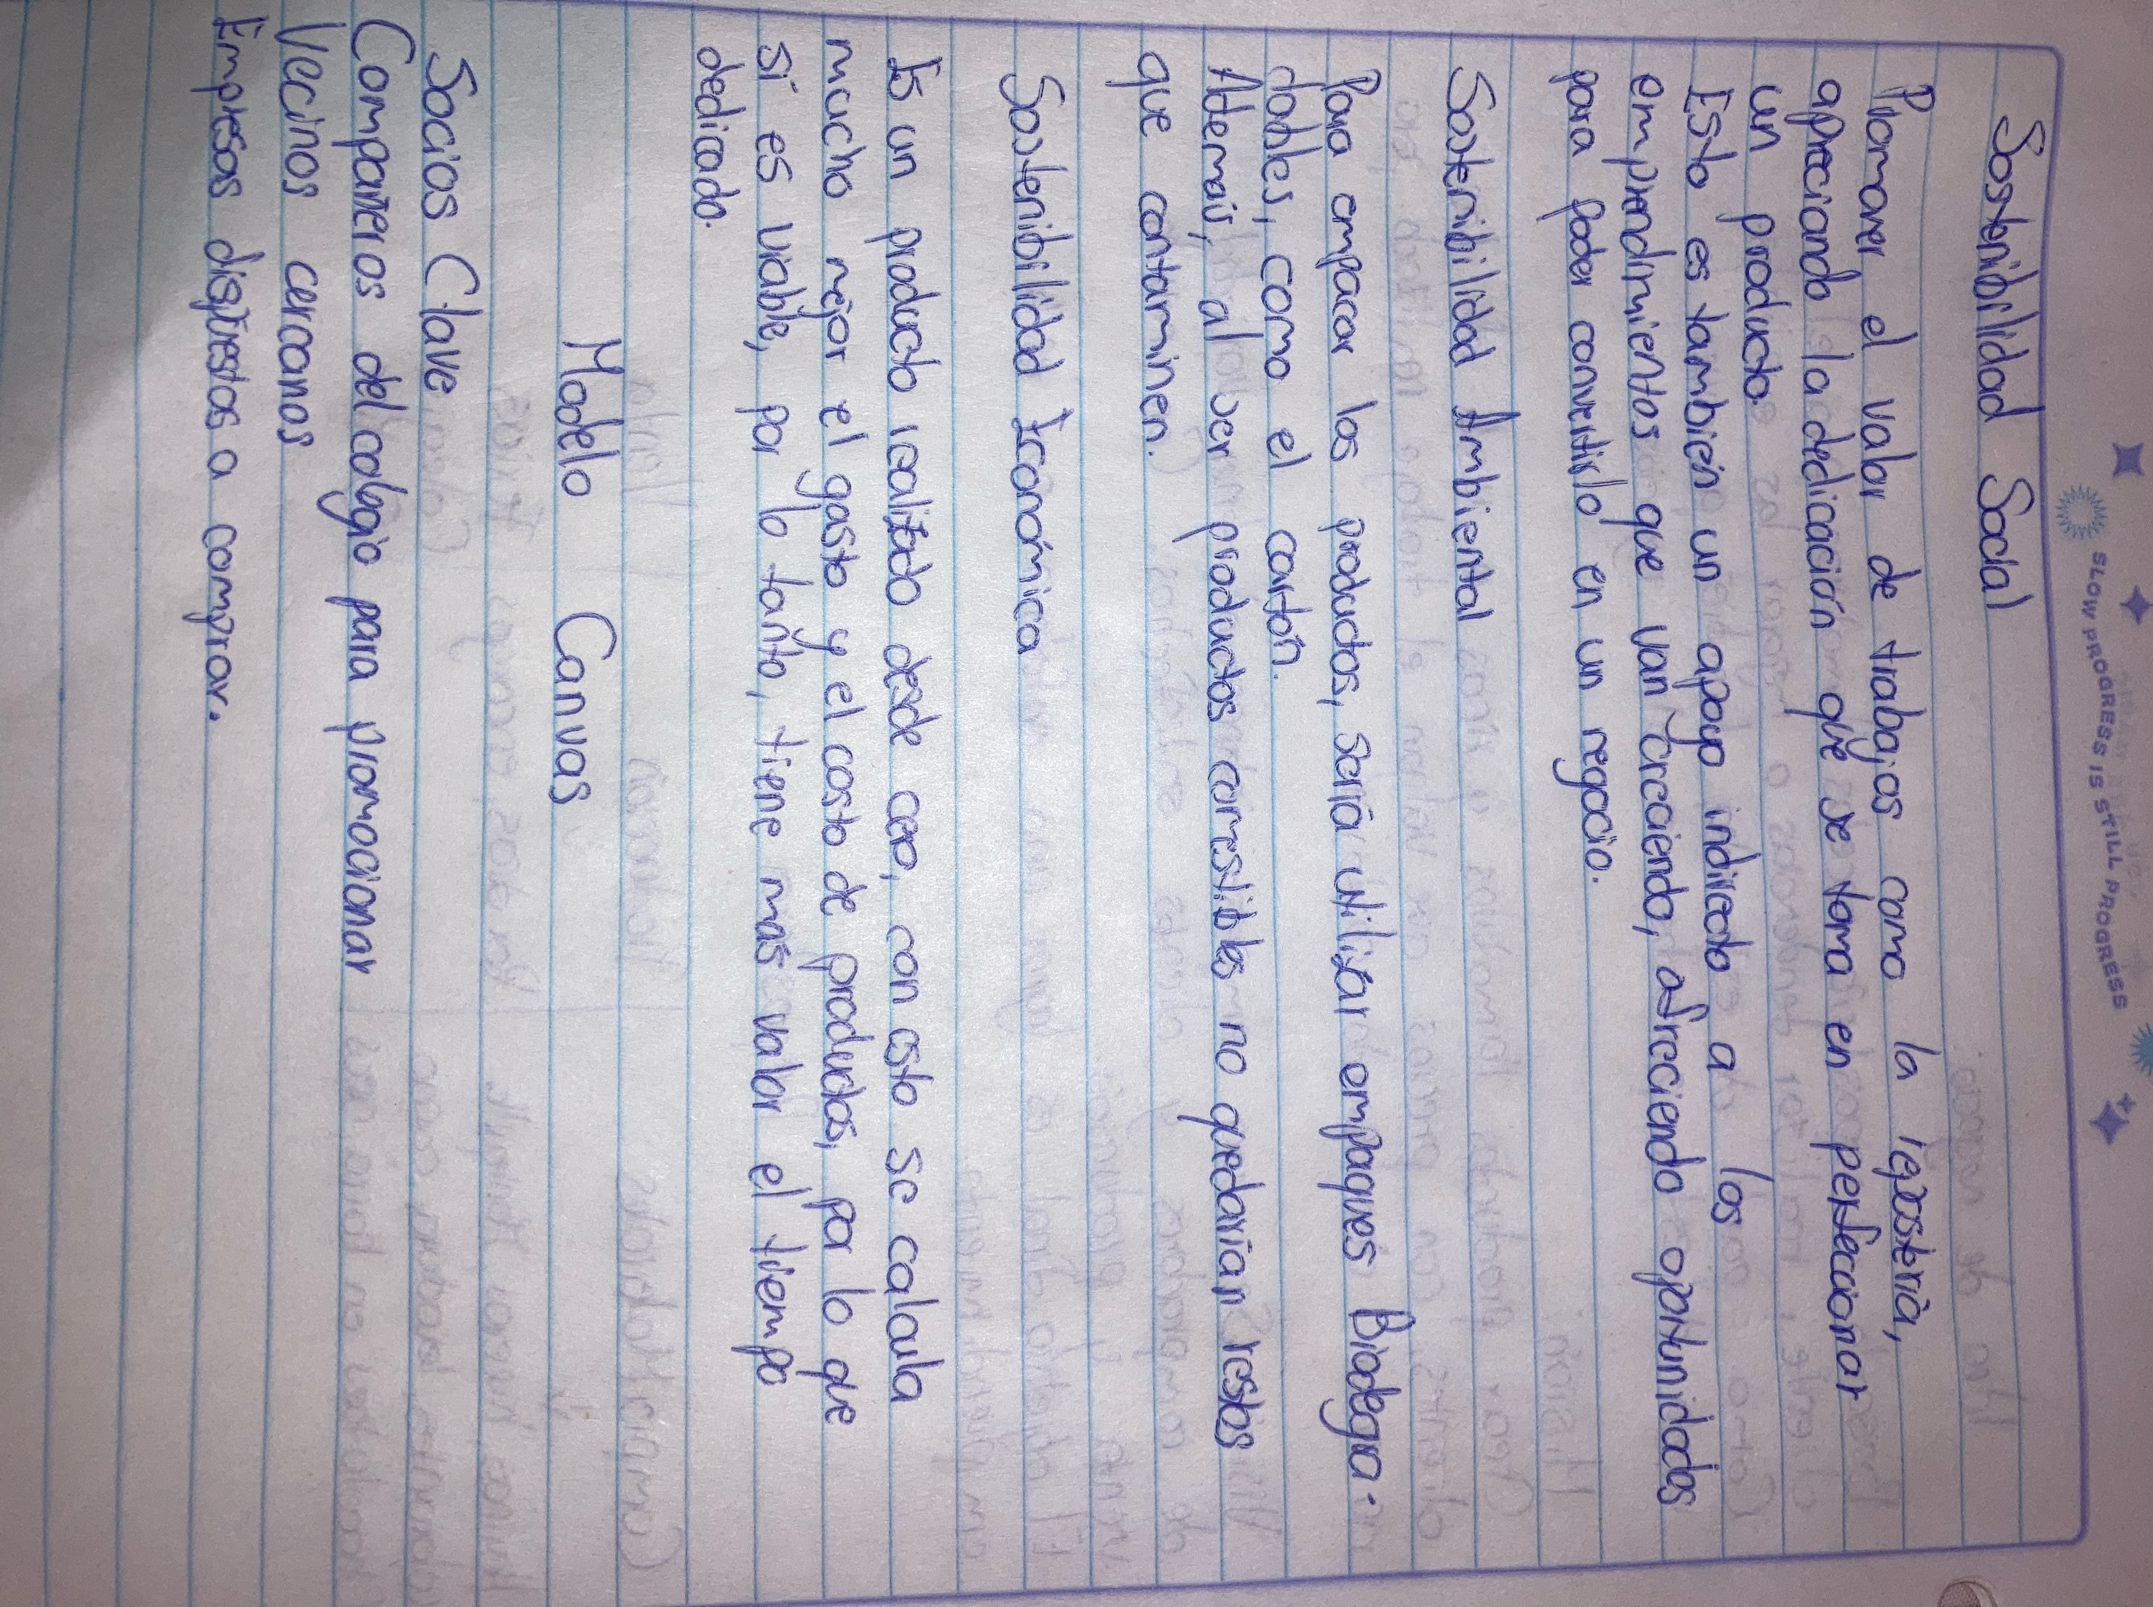 SLOW PROGRESS IS STILL PROGRESS
Sostenibilidad Social
Promover el valor de trabajos como la repostería,
apreciando la dedicación que se toma en perfeccionar
un producto.
Esto es también un apoyo indirecto a los
emprendimientos que van creciendo, ofreciendo oportunidades
para poder convertirlo en un negocio.
Sostenibilidad Ambiental
Para empacar los productos, sería utilizar empaques Biodegra-
dables, como el cartón.
Además, al ser productos comestibles no quedarían restos
que contaminen.
Sostenibilidad Económica
Es un producto realizado desde cero, con esto se calcula
mucho mejor el gasto y el costo de productos, por lo que
si es viable, por lo tanto, tiene más valor el tiempo
dedicado.
Modelo Canvas
Socios Clave
Compañeros del colegio para promocionar
Vecinos cercanos
Empresas dispuestas a comprar.